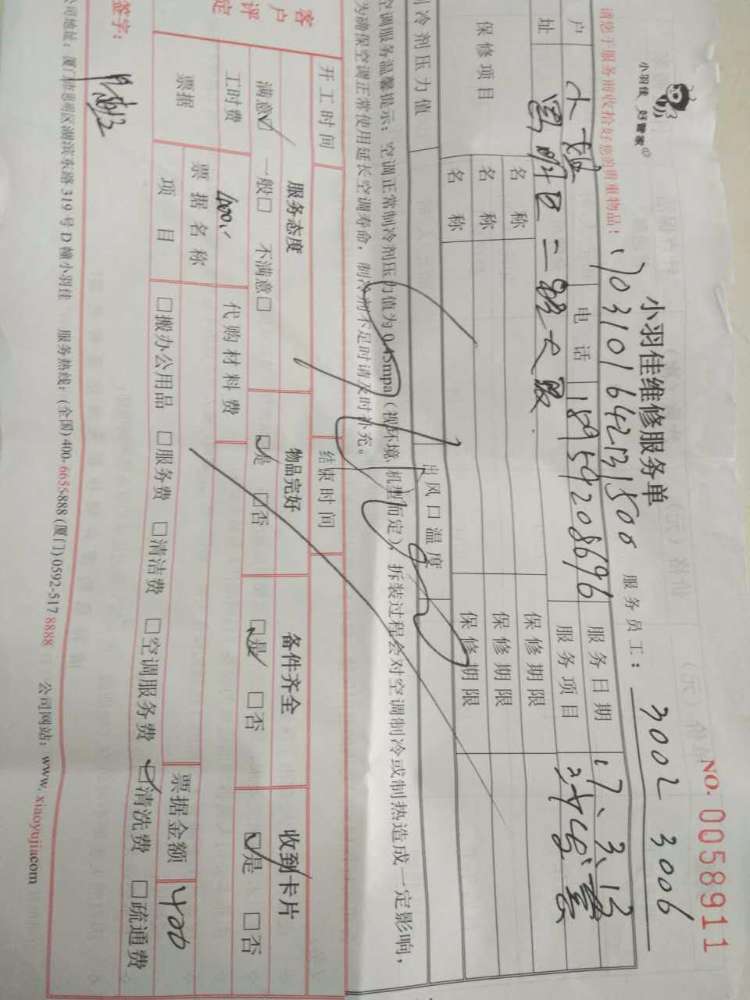 小羽佳 好管家
小羽佳维修服务单
NO. 0058911
请您于服务前收拾好您的贵重物品!
1703101642131500
服务员工: 3002 3006
户
电话 18959208696
服务日期 17.3.13
址
二路大厦
服务项目
保修项目
名称
保修期限
名称
保修期限
名称
保修期限
冷剂压力值
出风口温度
空调服务温馨提示:空调正常制冷剂压力值为0.45mpa(视环境,机型而定),拆装过程会对空调制冷或制热造成一定影响,
为确保空调正常使用延长空调寿命,制冷剂不足时请及时补充。
开工时间
结束时间
客户评定
服务态度
物品完好
备件齐全
收到卡片
满意☑ 一般□ 不满意□
☑是 □否
☑是 □否
☑是 □否
工时费
代购材料费
票据
票据名称
票据金额 400
项目
□搬办公用品 □服务费 □清洁费 □空调服务费 ☑清洗费 □疏通费
签字:
公司地址:厦门市思明区湖滨东路319号D幢小羽佳 服务热线:(全国)400-6655-888 (厦门)0592-517 8888 公司网站:www.xiaoyujia.com